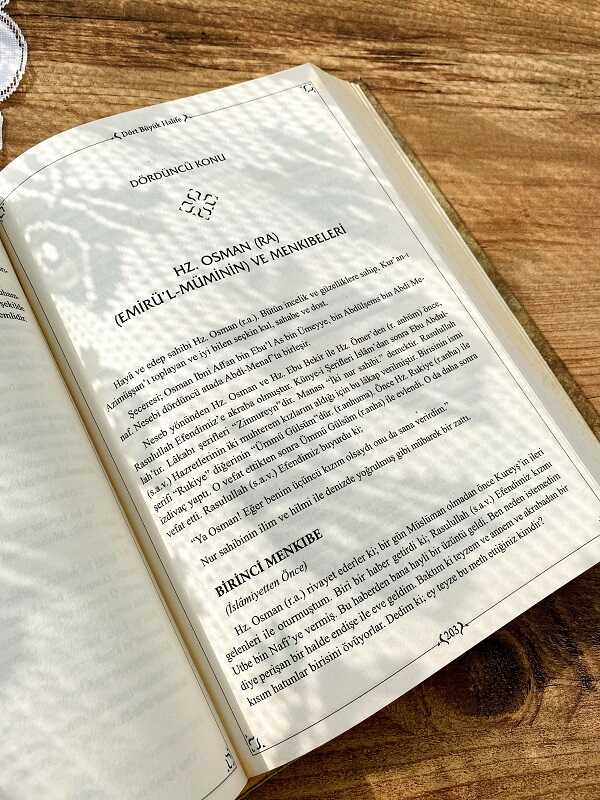 uham.
şekilde
emlidir.
Dört Büyük Halife
DÖRDÜNCÜ KONU
HZ. OSMAN (RA)
(EMİRÜ'L-MÜMİNİN) VE MENKIBELERİ
Hayâ ve edep sahibi Hz. Osman (r.a.). Bütün incelik ve güzelliklere sahip, Kur'an-ı
Azimüşşan'ı toplayan ve iyi bilen seçkin kul, sahabe ve dost.
Şeceresi; Osman İbni Affan bin Ebu'l As bin Ümeyye, bin Abdülşems bin Abdi Me-
naf. Nesebi dördüncü atada Abdi-Menaf'ta birleşir.
Neseb yönünden Hz. Osman ve Hz. Ebu Bekir ile Hz. Ömer'den (r. anhüm) önce,
Rasulullah Efendimiz'e akraba olmuştur. Künye-i Şerifleri İslâm'dan sonra Ebu Abdul-
lah'tır. Lâkabı şerifleri "Zinnureyn"dir. Manası "İki nur sahibi," demektir. Rasulullah
(s.a.v.) Hazretlerinin iki muhterem kızlarını aldığı için bu lâkap verilmiştir. Birisinin ismi
şerifi "Rukiye" diğerinin "Ümmü Gülsüm"dür. (r.anhuma). Önce Hz. Rukiye (r.anha) ile
izdivaç yaptı. O vefat ettikten sonra Ümmü Gülsüm (r.anha) ile evlendi. O da daha sonra
vefat etti. Rasulullah (s.a.v.) Efendimiz buyurdu ki;
"Ya Osman! Eğer benim üçüncü kızım olsaydı onu da sana verirdim."
Nur sahibinin ilim ve hilmi ile denizde yoğrulmuş gibi mübarek bir zattı.
BİRİNCİ MENKIBE
(İslâmiyetten Önce)
Hz. Osman (r.a.) rivayet ederler ki; bir gün Müslüman olmadan önce Kureyş'in ileri
gelenleri ile oturmuştum. Biri bir haber getirdi ki; Rasulullah (s.a.v.) Efendimiz kızını
Utbe bin Nafi'ye vermiş. Bu haberden bana hayli bir üzüntü geldi. Ben neden istemedim
diye perişan bir halde endişe ile eve geldim. Baktım ki teyzem ve annem ve akrabadan bir
kısım hatunlar birisini övüyorlar. Dedim ki; ey teyze bu meth ettiğiniz kimdir?
203